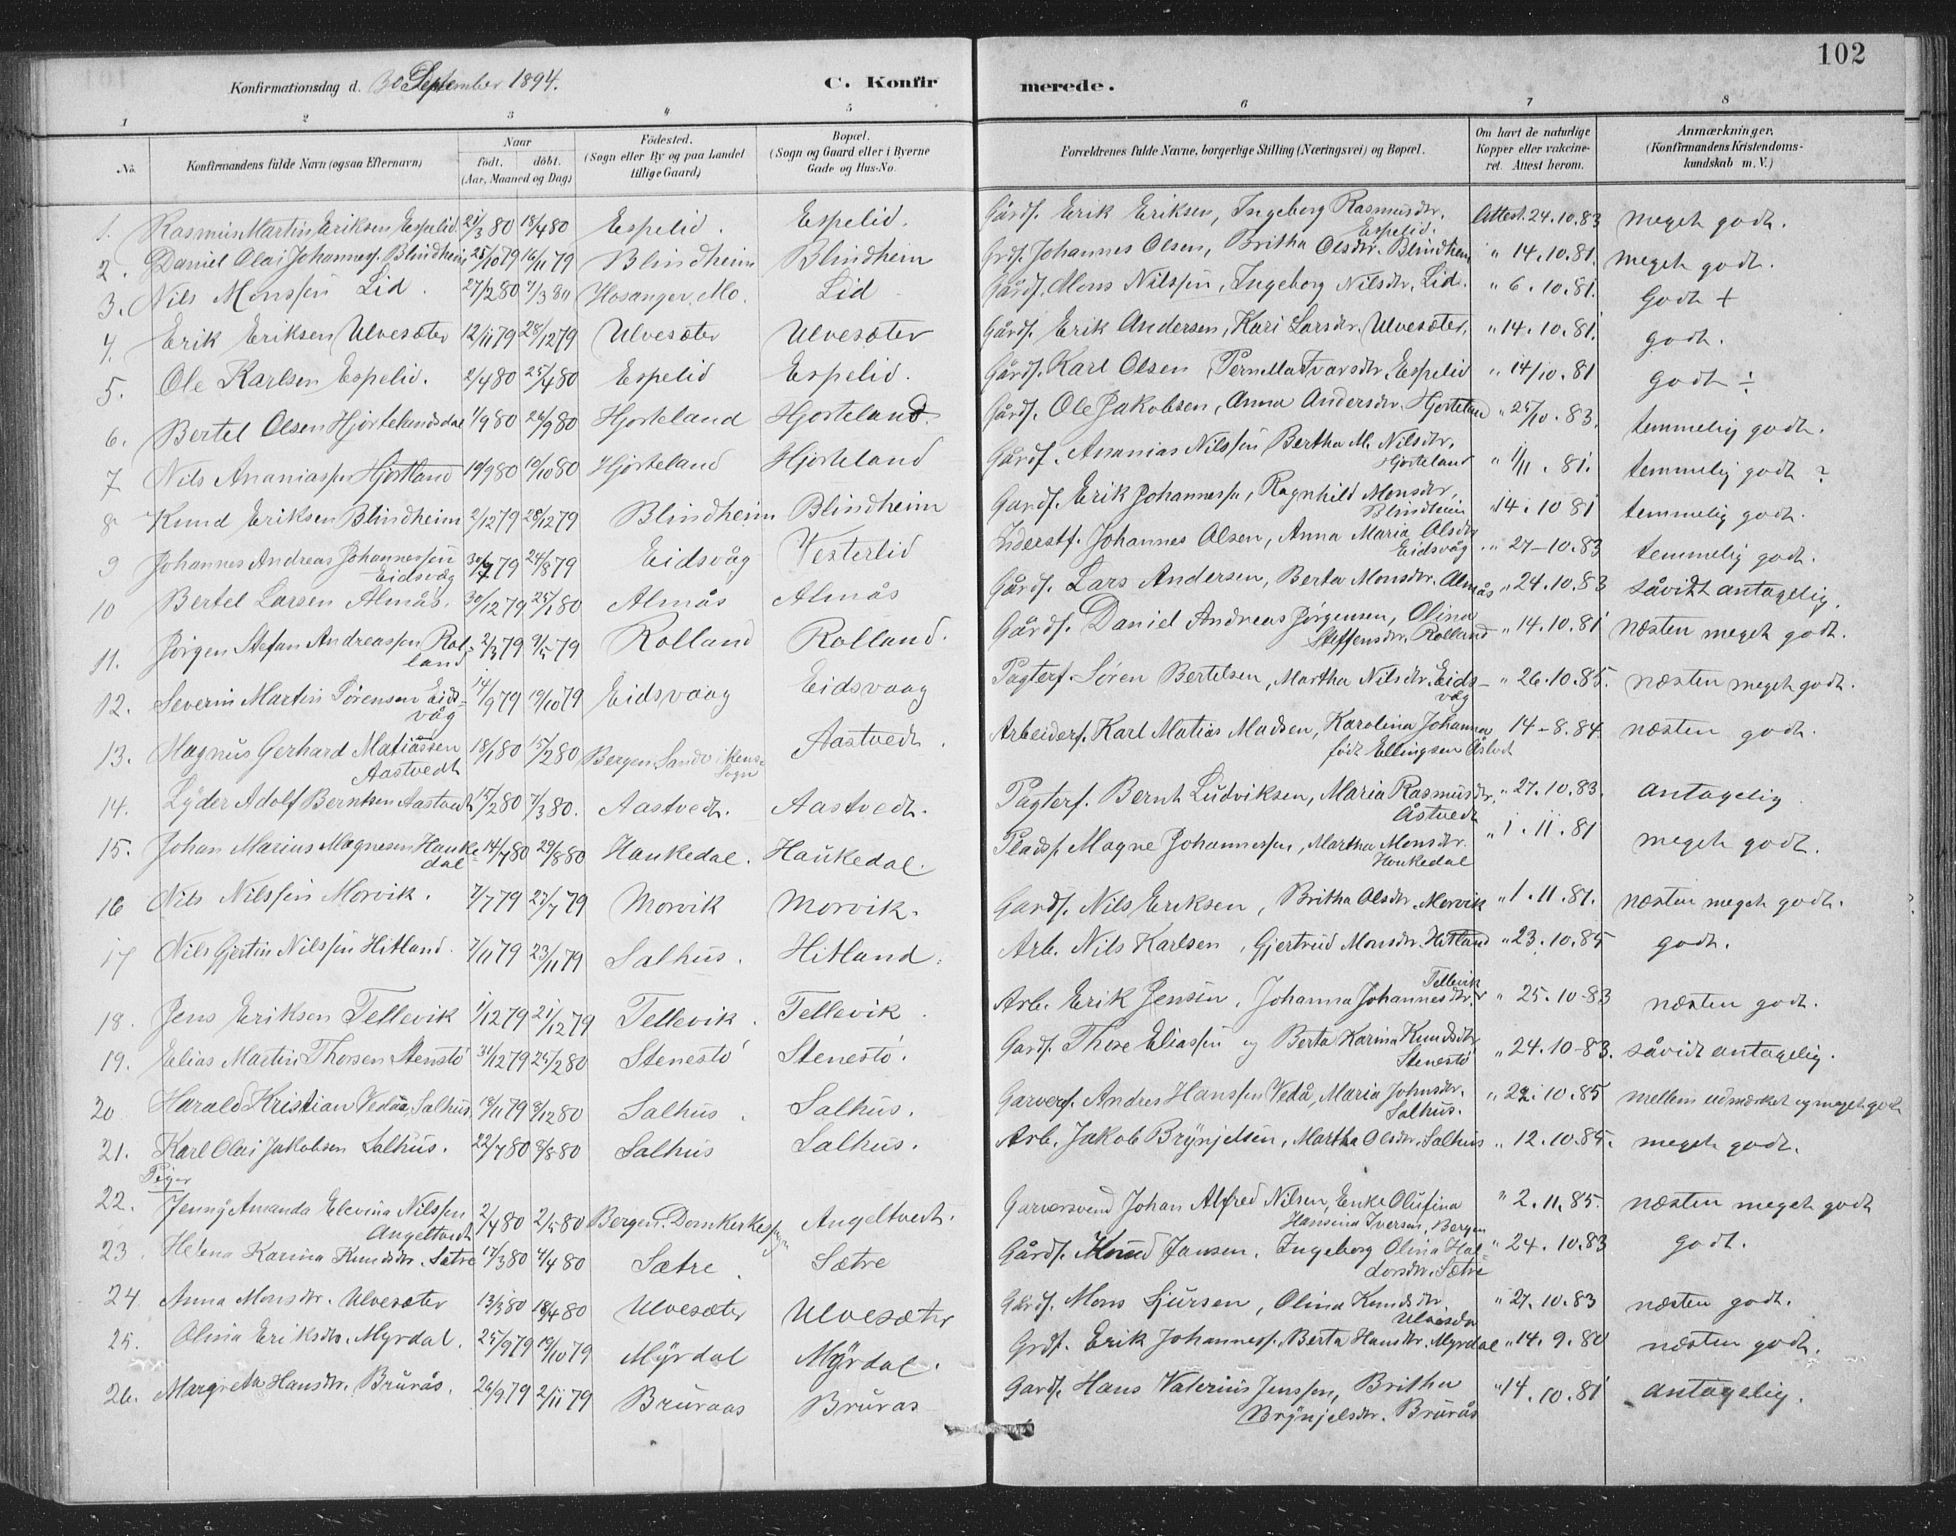 102
Konfirmationsdag d. 30 September 1894. C. Konfir merede.
1 2 3 4 5 6 7 8
No. Konfirmandens fulde Navn (ogsaa Efternavn) Naar født, døbt. (Aar, Maaned og Dag) Fødested. (Sogn eller By og paa Landet tillige Gaard) Bopæl. (Sogn og Gaard eller i Byerne Gade og Hus-No. Forældrenes fulde Navne, borgerlige Stilling (Næringsvei) og Bopæl. Om havt de naturlige Kopper eller vakcineret. Attest herom. Anmærkninger. (Konfirmandens Kristendomskundskab m. V.)
1. Rasmus Martin Eriksen Espelid 21/3 80 18/4 80 Espelid. Espelid. Gårdf. Erik Eriksen, Ingeborg Rasmusdtr. Espelid. Attest. 24.10.83 meget godt.
2. Daniel Olai Johannesf. Blindheim 25/10 79 16/11 79 Blindheim Blindheim Grdf. Johannes Olsen, Britha Olsdtr. Blindheim " 14.10.81. meget godt.
3. Nils Monssen Lid. 27/2 80 7/3 80 Hosanger, Mo. Lid Gårdf. Mons Nilssen, Ingeborg Nilsdtr. Lid. " 6.10.81. Godt +
4. Erik Eriksen Ulvesæter 12/11 79 28/12 79 Ulvesæter Ulvesæter Gårdf. Erik Andersen, Kari Larsdtr. Ulvesæter, " 14.10.81. godt.
5. Ole Karlsen Espelid. 2/4 80 25/4 80 Espelid Espelid. Gårdf. Karl Olsen Pernella Ivarsdtr. Espelid " 14/10.81 godt ÷
6. Bertel Olsen Hjortelandsdal 1/9 80 26/9 80 Hjorteland Hjorteland. Gårdf. Ole Jakobsen, Anna Andersdtr. Hjortelan " 25/10.83. temmelig godt.
7. Nils Ananiassen Hjortland 19/9 80 10/10 80 Hjorteland Hjorteland Gårdf. Ananias Nilssen Bertha M. Nilsdtr. Hjorteland " 1/11.81. temmelig godt ?
8 Knud Eriksen Blindheim 2/12 79 28/12 79 Blindheim Blindheim Gardf. Erik Johannessen, Ragnhild Monsdtr, Blindheim " 14.10 81 temmelig godt.
9 Johannes Andreas Johannessen Eidsvåg 30/7 79 24/8 79 Eidsvåg Vesterlid Johannes Olsen, Anna Maria Olsdtr Eidsvåg " 27-10.83 temmelig godt.
10 Bertel Larsen Almås. 30/12 79 25/1 80 Almås Almås Gårdf. Lars Andersen, Berta Monsdtr. Almås " 24.10.83 såvidt antagelig.
11. Jørgen Stefan Andreassen Rolland 2/3 79 4/5 79 Rolland Rolland. Gårdf. Daniel Andreas Jørgensen, Olina Steffensdtr. Rolland " 14.10.81 næsten meget godt.
12. Severin Martin Sørensen Eidsvåg 14/9 79 19/10 79 Eidsvaag Eidsvaag Pagterf. Søren Bertelsen, Martha Nilsdtr. Eidsvåg " 26.10.85. næsten meget godt.
13. Magnus Gerhard Matiassen Aastvedt 18/1 80 15/2 80 Bergen, Sandvikens Sogn Aastvedt. Arbeiderf. Karl Matias Madsen, Karolina Johanna født Ellingsen Åstvdt 14-8.84 næsten godt.
14. Lyder Adolf Berntsen Aastvedt 15/2 80 7/3 80. Aastvedt. Aastvedt. Pagterf. Bernt Ludviksen, Maria Rasmusdtr, Åstvedt " 27.10.83. antagelig
15. Johan Marius Magnesen Haukedal 14/7 80 29/8 80 Haukedal. Haukedal. Pladsf. Magne Johannessen, Martha Monsdtr. Haukedal " 1.11.81 meget godt.
16 Nils Nilssen Morvik. 7/7 79 27/7 79 Morvik Morvik. Gardf. Nils Eriksen, Britha Olsdtr. Morvik " 1.11.81. næsten meget godt.
17 Nils Gjertin Nilssen Hitland. 7/11 79 23/11 79 Salhus. Hitland. Arb. Nils Karlsen, Gjertrud Monsdtr. Hitland " 23.10.85 godt.
18. Jens Eriksen Tellevik 1/12 79 21/12 79 Tellevik. Tellevik. Arb. Erik Jensen, Johanna Johannesdtr. Tellevik " 25.10-83 næsten godt.
19. Elias Martin Thorsen Stenstø 31/12 79 25/2 80 Stenestø Stenestø. Gardf. Thore Eliassen og Berta Karina Knudsdtr Stenestø " 24.10-83. såvidt antagelig.
20 Harald Kristian Vedaa, Salhus 18/11 79 9/12 80 Salhus. Salhus. Garverf. Andres Hanssen Vedå, Maria Johnsdtr. Salhus. " 22.10.85 mellem udmærket og meget godt
21. Karl Olai Jakobsen Salhus. 22/7 80 8/8 80 Salhus Salhus. Arb. Jakob Brynjelsen, Martha Olsdtr. Salhus " 12.10.85. meget godt.
Piger
22. Jenny Amanda Elevina Nilssen Angeltvedt 2/4 80 2/5 80 Bergen. Domkirkesogn Angeltvedt. Garversvend Johan Alfred Nilsen, Enke Olufina Hansina Iversen, Bergen " 2.11.85. næsten meget godt
23. Helena Karina Knudsdtr. Sætre 17/3 80 4/4 80 Sætre Sætre Gårdf. Knud Jansen, Ingeborg Olina Haldorsdtr. Sætre " 24.10.83 godt.
24 Anna Monsdtr. Ulvesæter 13/3 80 18/4 80 Ulvesæter Ulvesæter Gårdf. Mons Sjursen, Olina Knudsdtr. Ulvesdr " 27.10.83 næsten godt.
25. Olina Eriksdtr. Myrdal. 25/9 79 19/10 79 Myrdal Myrdal. Grdf. Erik Johannesf. Berta Hansdtr. Myrdal " 14.9.80 næsten godt.
26. Margreta Hansdtr. Brurås. 26/9 79 2/11 79 Bruraas Bruras Gardf. Hans Valerius Jenssen, Britha Brynjelsdtr. Brurås " 14.10.81 antagelig.